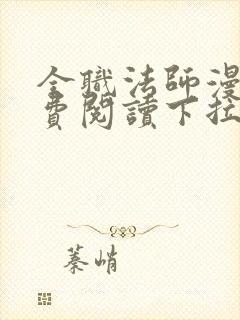 全職法師漫
費閱讀下拉
蓁峭